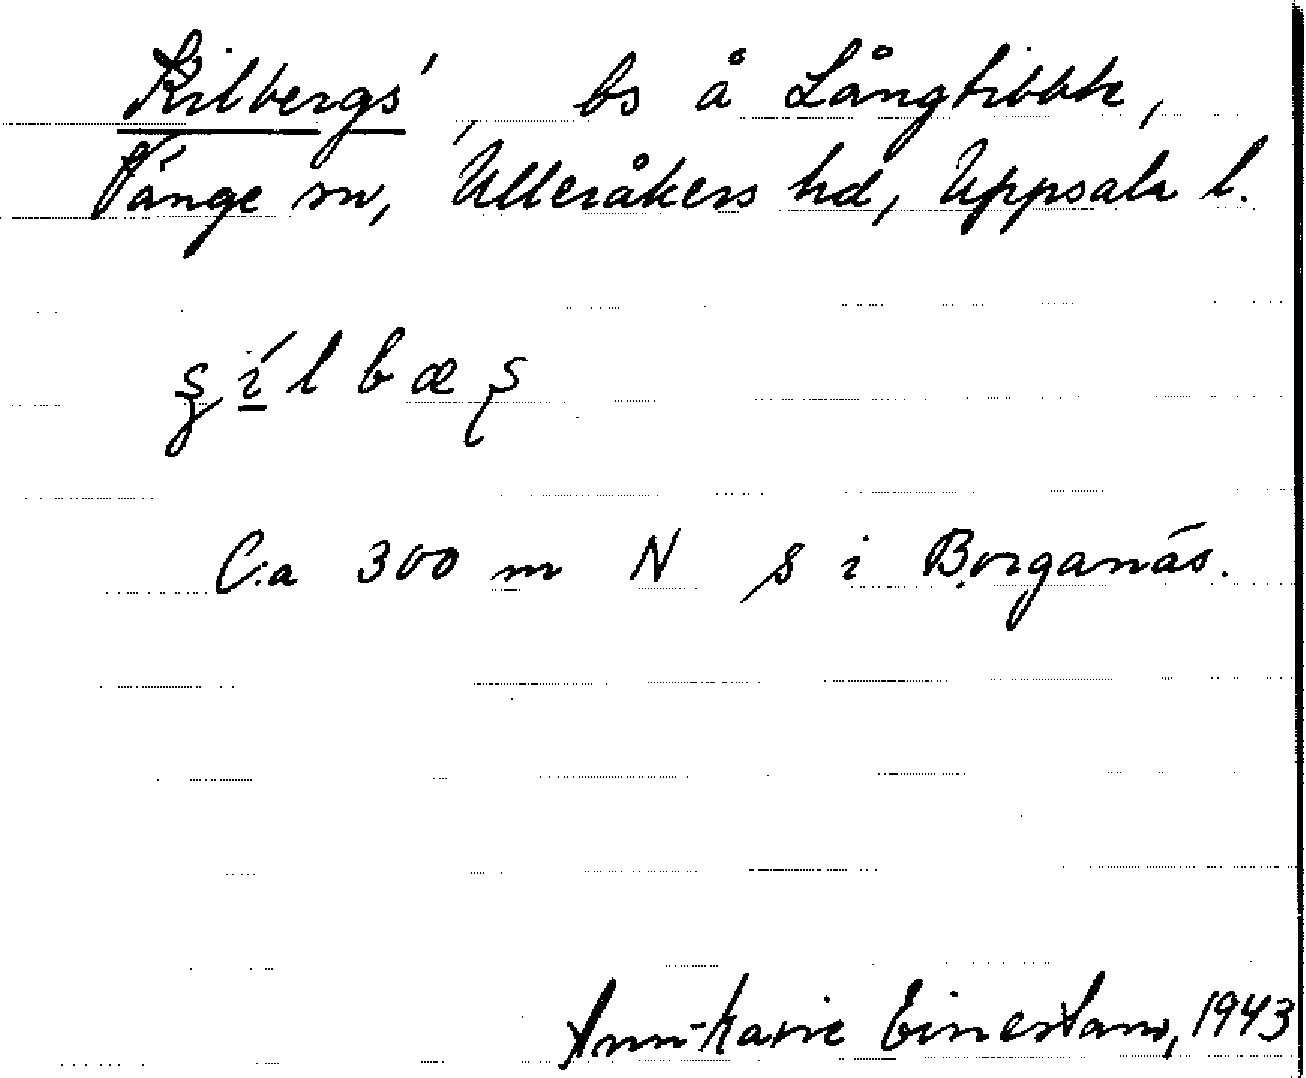 Kilbergs', bs å Långtibble,
Vänge sn, Ulleråkers hd, Uppsala l.
ílbæ
C:a 300 m N s i Borganäs.
Ann-Marie Einerstam, 1943